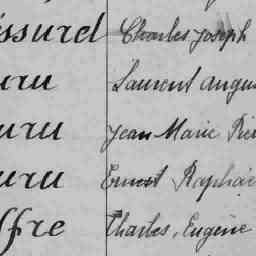 ssurd Charles Joseph
uru Laurent augu
uru Jean Marie Pie
uru Ernest Raphae
ffre Charles, Eugène